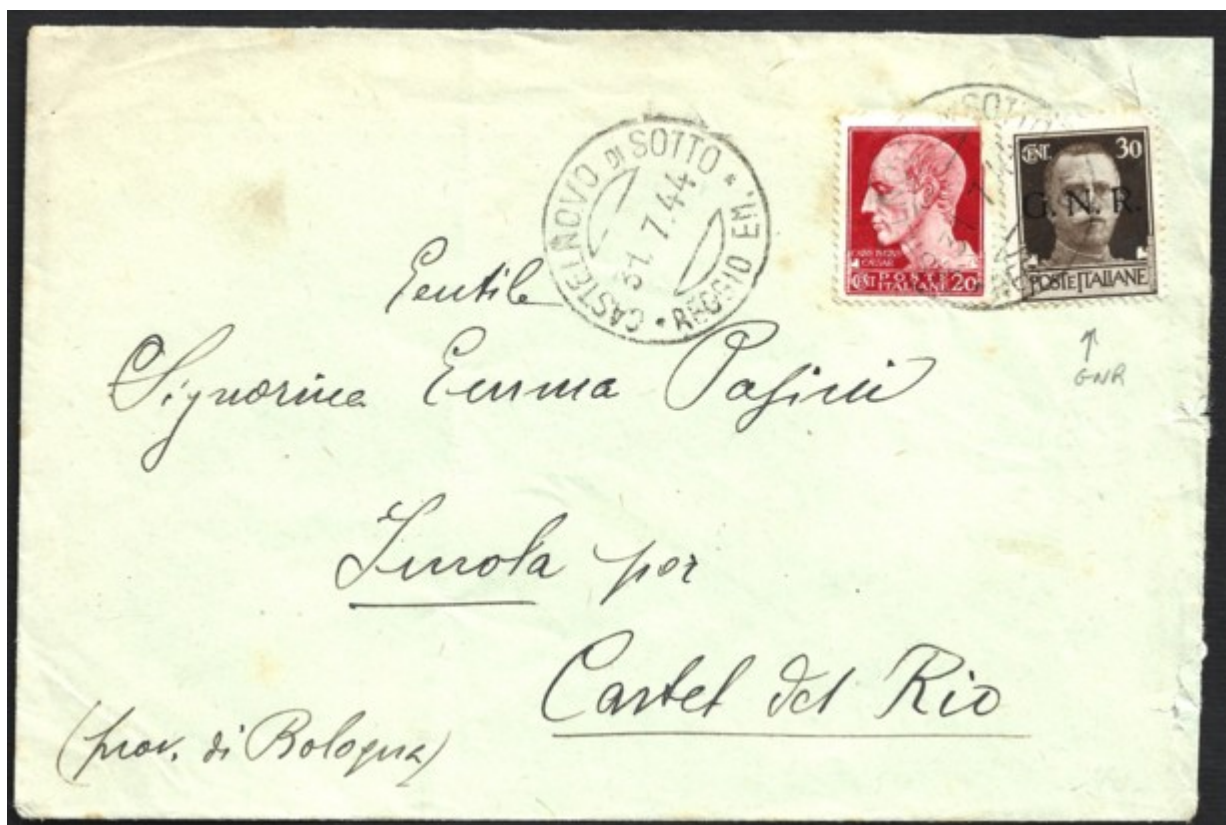 CASTELNOVO DI SOTTO * REGGIO EM.
31.7.44
SOTTO
CAIVS IVLIVS
CAESAR
CENT POSTE
ITALIANE 20
CENT. 30
G. N. R.
POSTE ITALIANE
GNR
Gentile
Signorina Emma Pasini
Imola per
Castel del Rio
(prov. di Bologna)